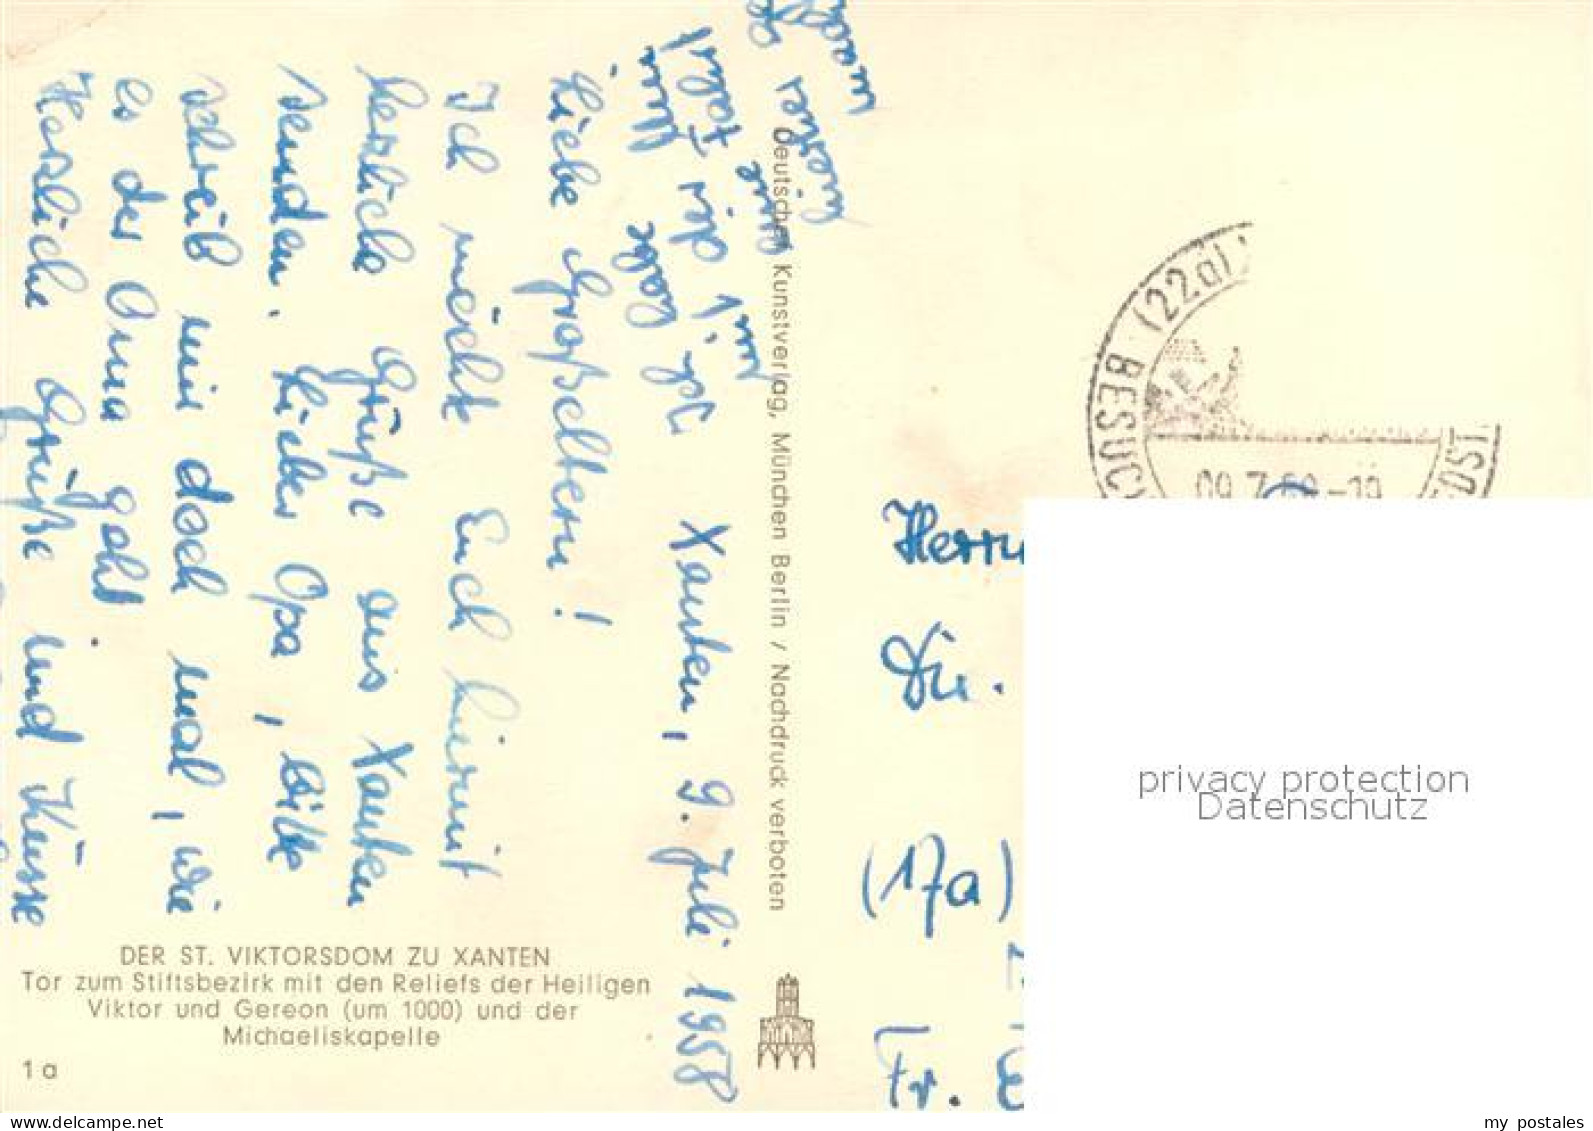 Xanten, 9. Juli 1958
Liebe Großeltern!
Ich möchte Euch hiermit
herzliche Grüße aus Xanten
senden. Lieber Opa, bitte
schreib mir doch mal, wie
es der Oma geht.
Herzliche Grüße und Küsse
DER ST. VIKTORSDOM ZU XANTEN
Tor zum Stiftsbezirk mit den Reliefs der Heiligen
Viktor und Gereon (um 1000) und der
Michaeliskapelle
1 a
Deutscher Kunstverlag, München Berlin / Nachdruck verboten
(22a)
BESUC
09.7.58-19
Herrn
Dir.
(17a)
Fr.
privacy protection
Datenschutz
www.delcampe.net
my_postales